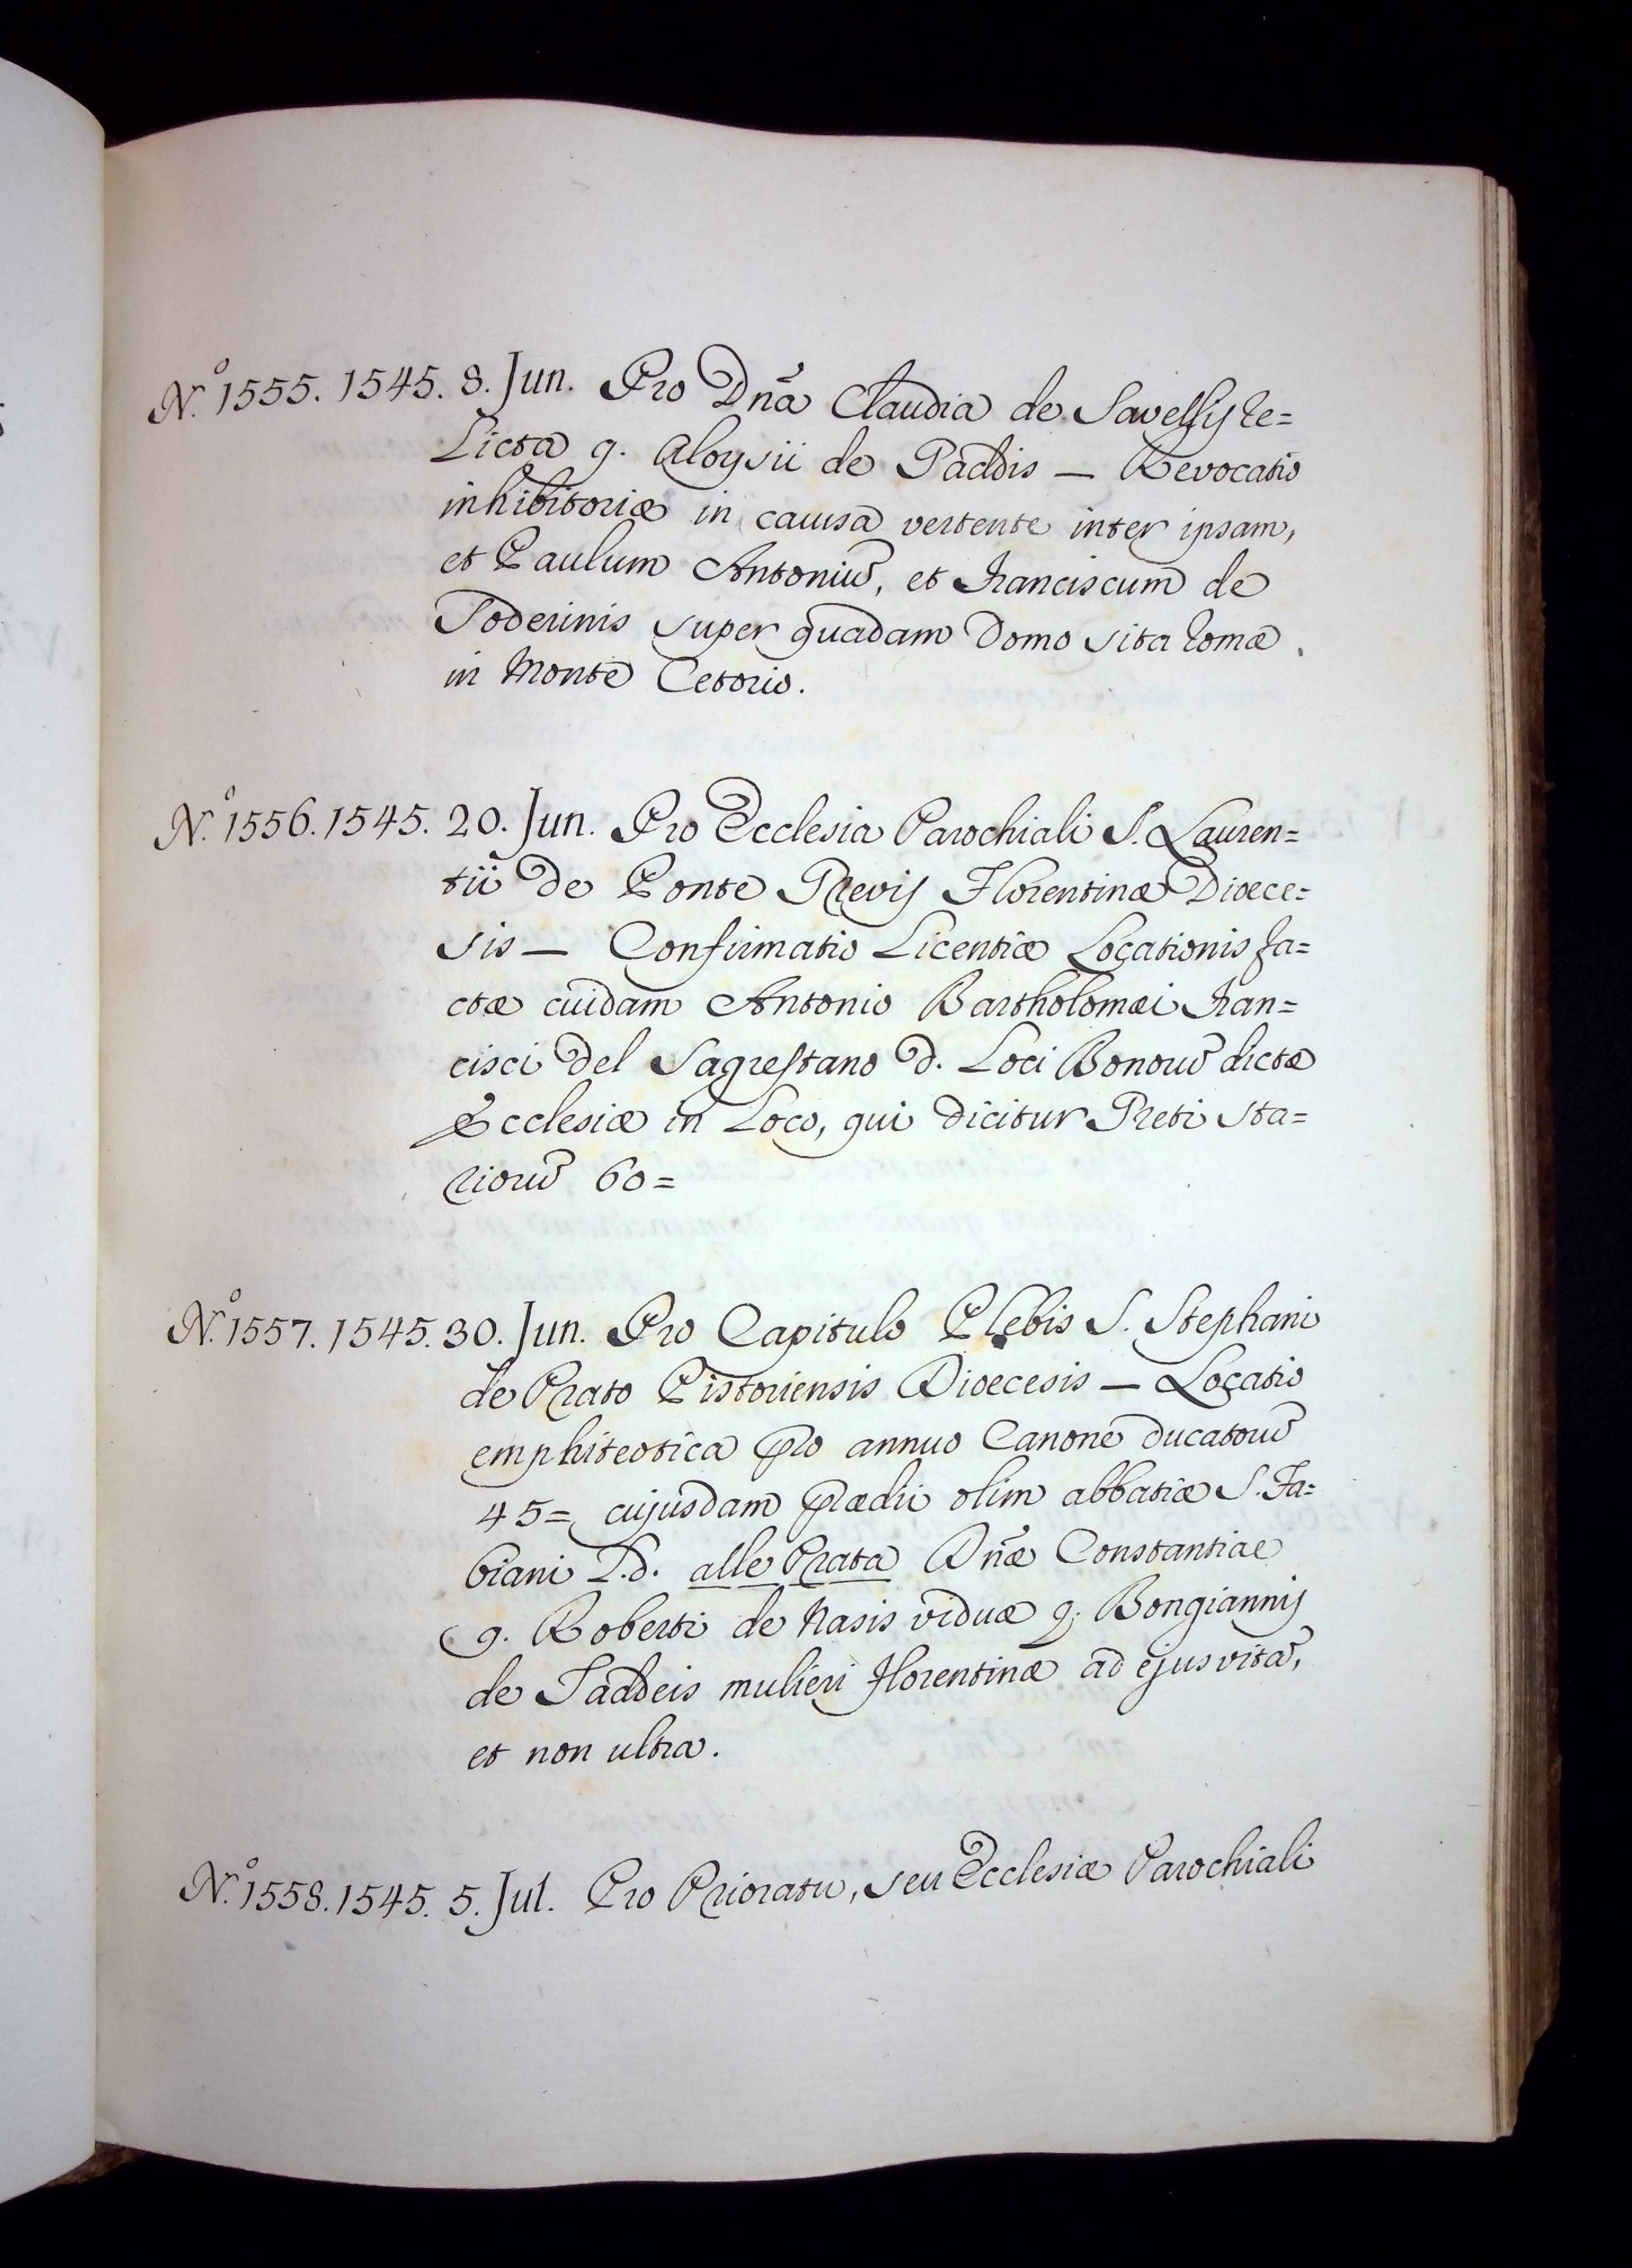 N.º 1555. 1545. 8. Jun. Pro Dña Claudia de Savellis Re=
licta q. Aloysii de Paddis — Revocatio
inhibitoriæ in causa vertente inter ipsam,
et Paulum Antoniũ, et Franciscum de
Soderinis super quadam Domo sita Romæ
in Monte Cetorio.
N.º 1556. 1545. 20. Jun. Pro Ecclesia Parochiali S. Lauren=
tii de Ponte Plevis Florentinæ Diœce=
sis — Confirmatio Licentiæ Locationis fa=
ctæ cuidam Antonio Bartholomæi Fran=
cisci del Sagrestano d. Loci Bonorũ dictæ
Ecclesiæ in Loco, qui dicitur Preti sta=
riorũ 60=
N.º 1557. 1545. 30. Jun. Pro Capitulo Plebis S. Stephani
de Prato Pistoriensis Diœcesis — Locatio
emphiteotica pro annuo Canone ducatorũ
45= cujusdam prædii olim abbatiæ S. Fa=
biani L.d. alle Prata Dñæ Constantiae
q. Roberti de Nasis viduæ q. Bongiannis
de Taddeis mulieri Florentinæ ad ejus vitã,
et non ultra.
N.º 1558. 1545. 5. Jul. Pro Prioratu, seu Ecclesiæ Parochiali